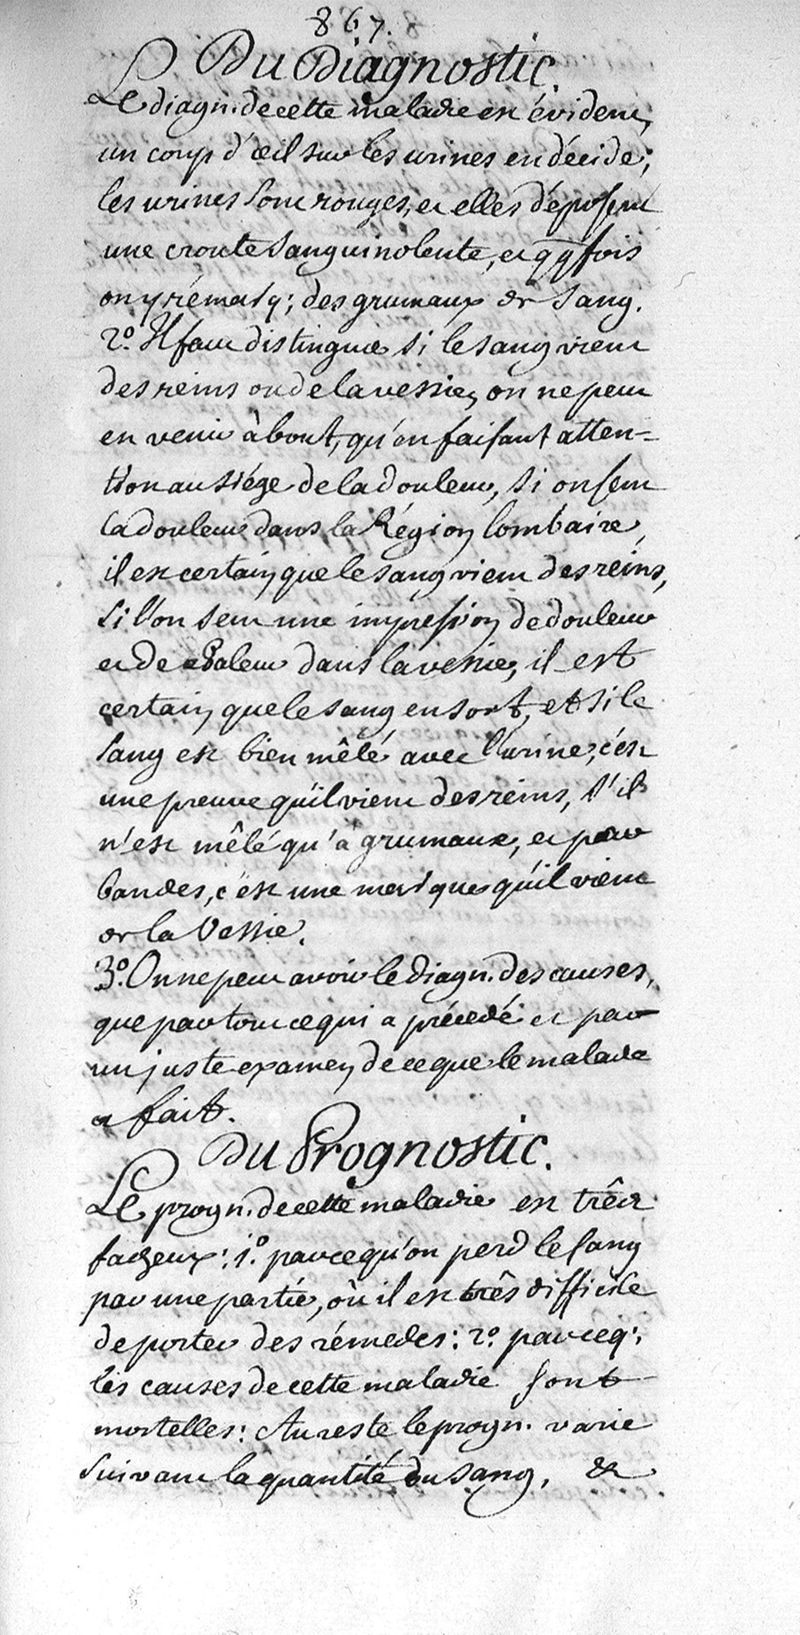 867.
Du Diagnostic.
Le diagn. de cette maladie est évident,
un coup d'œil sur les urines en décide;
les urines sont rouges, et elles déposent
une croute sanguinolente, et qqfois
on y rémarq; des grumaux de sang.
2.º Il faut distinguer si le sang vient
des reins ou de la vessie, on ne peut
en venir à bout, qu'en faisant atten=
tion au siége de la douleur, si on sent
la douleur dans la Région lombaire,
il est certain que le sang vient des reins,
si l'on sent une impression de douleur
et de chaleur dans la vessie, il est
certain que le sang en sort, et si le
sang est bien mêlé avec l'urine, c'est
une preuve qu'il vient des reins, s'il
n'est mêlé qu'a grumaux, et par
bandes, c'est une marque qu'il vient
de la Vessie.
3.º On ne peut avoir le diagn. des causes,
que par tout ce qui a précedé et par
un juste examen de ce que le malade
a fait.
Du Prognostic.
Le progn. de cette maladie est trêst
facheux: 1.º parce qu'on perd le sang
par une partie, où il est très difficile
de porter des rémedes: 2.º parceq;
les causes de cette maladie sont
mortelles: Au reste le progn. varie
suivant la quantité du sang, &